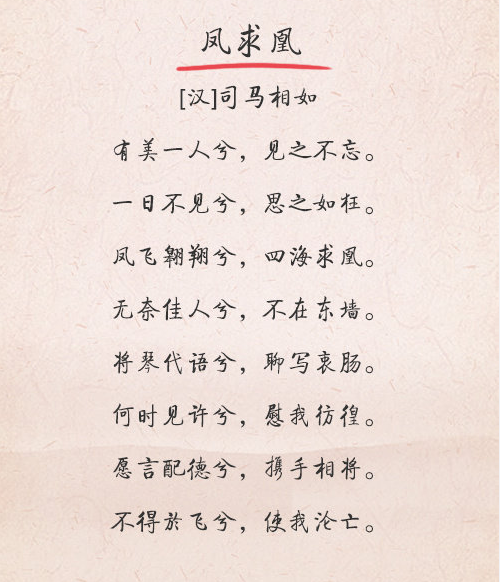 凤求凰
[汉]司马相如
有美一人兮，见之不忘。
一日不见兮，思之如狂。
凤飞翱翔兮，四海求凰。
无奈佳人兮，不在东墙。
将琴代语兮，聊写衷肠。
何时见许兮，慰我彷徨。
愿言配德兮，携手相将。
不得於飞兮，使我沦亡。